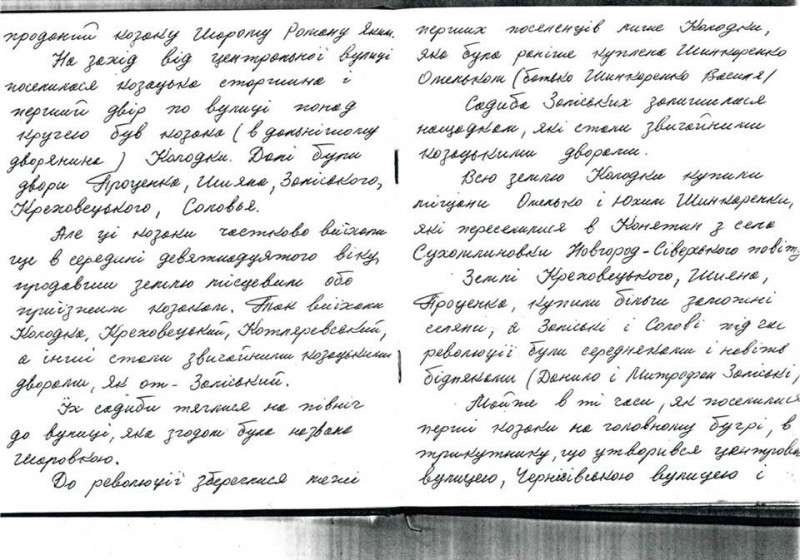 проданий козаку Шарому Роману Яким.
На захід від центральної вулиці
поселилася козацька старшина і
перший двір по вулиці понад
кручею був козака (в дальнішому
дворянина) Колодки. Далі були
двори Проценка, Шияна, Запіського,
Креховецького, Соловья.
Але ці козаки частково виїхали
ще в середині девятнадцятого віку,
продавши землю місцевим або
приїзжим козакам. Так виїхали
Колодка, Креховецький, Котляревський,
а інші стали звичайними козацькими
дворами, як от - Запіський.
Їх садиби тяглися на північ
до вулиці, яка згодом була названа
Шаровкою.
До революції збереглися межі
перших поселенців лише Колодки,
яка була раніше куплена Шинкаренко
Омельком (батько Шинкаренко Василя)
Садиба Запіських залишилася
нащадкам, які стали звичайними
козацькими дворами.
Всю землю Колодки купили
міщани Омелько і Юхим Шинкаренки,
які переселилися в Конятин з села
Сухомлиновки Новгород-Сіверського повіту.
Землі Креховецького, Шияна,
Проценка, купили більш заможні
селяни, а Запіські і Солові під час
революції були середняками і навіть
бідняками (Данило і Митрофан Запіські)
Майже в ті часи, як поселилися
перші козаки на головному бугрі, в
трикутнику, що утворився центральною
вулицею, Чернігівською вулицею і